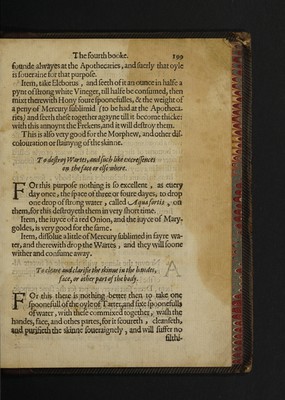 The fourth booke. 199
founde alwayes at the Apothecaries, and surely that oyle
is soueraine for that purpose.
Item, take Eleborus, and seeth of it an ounce in halfe a
pynt of strong white Vineger, till halfe be consumed, then
mixt therewith Hony foure spoonefulles, & the weight of
a peny of Mercury sublimid (to be had at the Apotheca-
ries) and seeth these together agayne till it become thicke:
with this annoynt the Frekens, and it will destroy them.
This is also very good for the Morphew, and other dis-
colouration or staynyng of the skinne.
To destroy Wartes, and such like excressences
on the face or elsewhere.
FOr this purpose nothing is so excellent, as euery
day once, the space of three or foure dayes, to drop
one drop of strong water, called Aqua fortis, on
them, for this destroyeth them in very short time.
Item, the iuyce of a red Onion, and the iuyce of Mary-
goldes, is very good for the same.
Item, dissolue a litle of Mercury sublimed in fayre wa-
ter, and therewith drop the Wartes, and they will soone
wither and consume away.
To cleane and clarifie the skinne in the handes,
face, or other part of the body.
FOr this there is nothing better then to take one
spoonefull of the oyle of Tarter, and sixe spoonefulls
of water, with these commixed together, wash the
handes, face, and other partes, for it scoureth, cleanseth,
and purifieth the skinne soueraignely, and will suffer no
filthi-